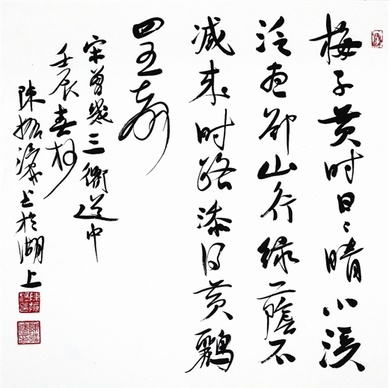 梅子黄时日日晴小溪
泛尽却山行绿荫不
减来时路添得黄鸝
四五声
宋曾几三衢道中
壬辰春杪
陈振濂书于湖上